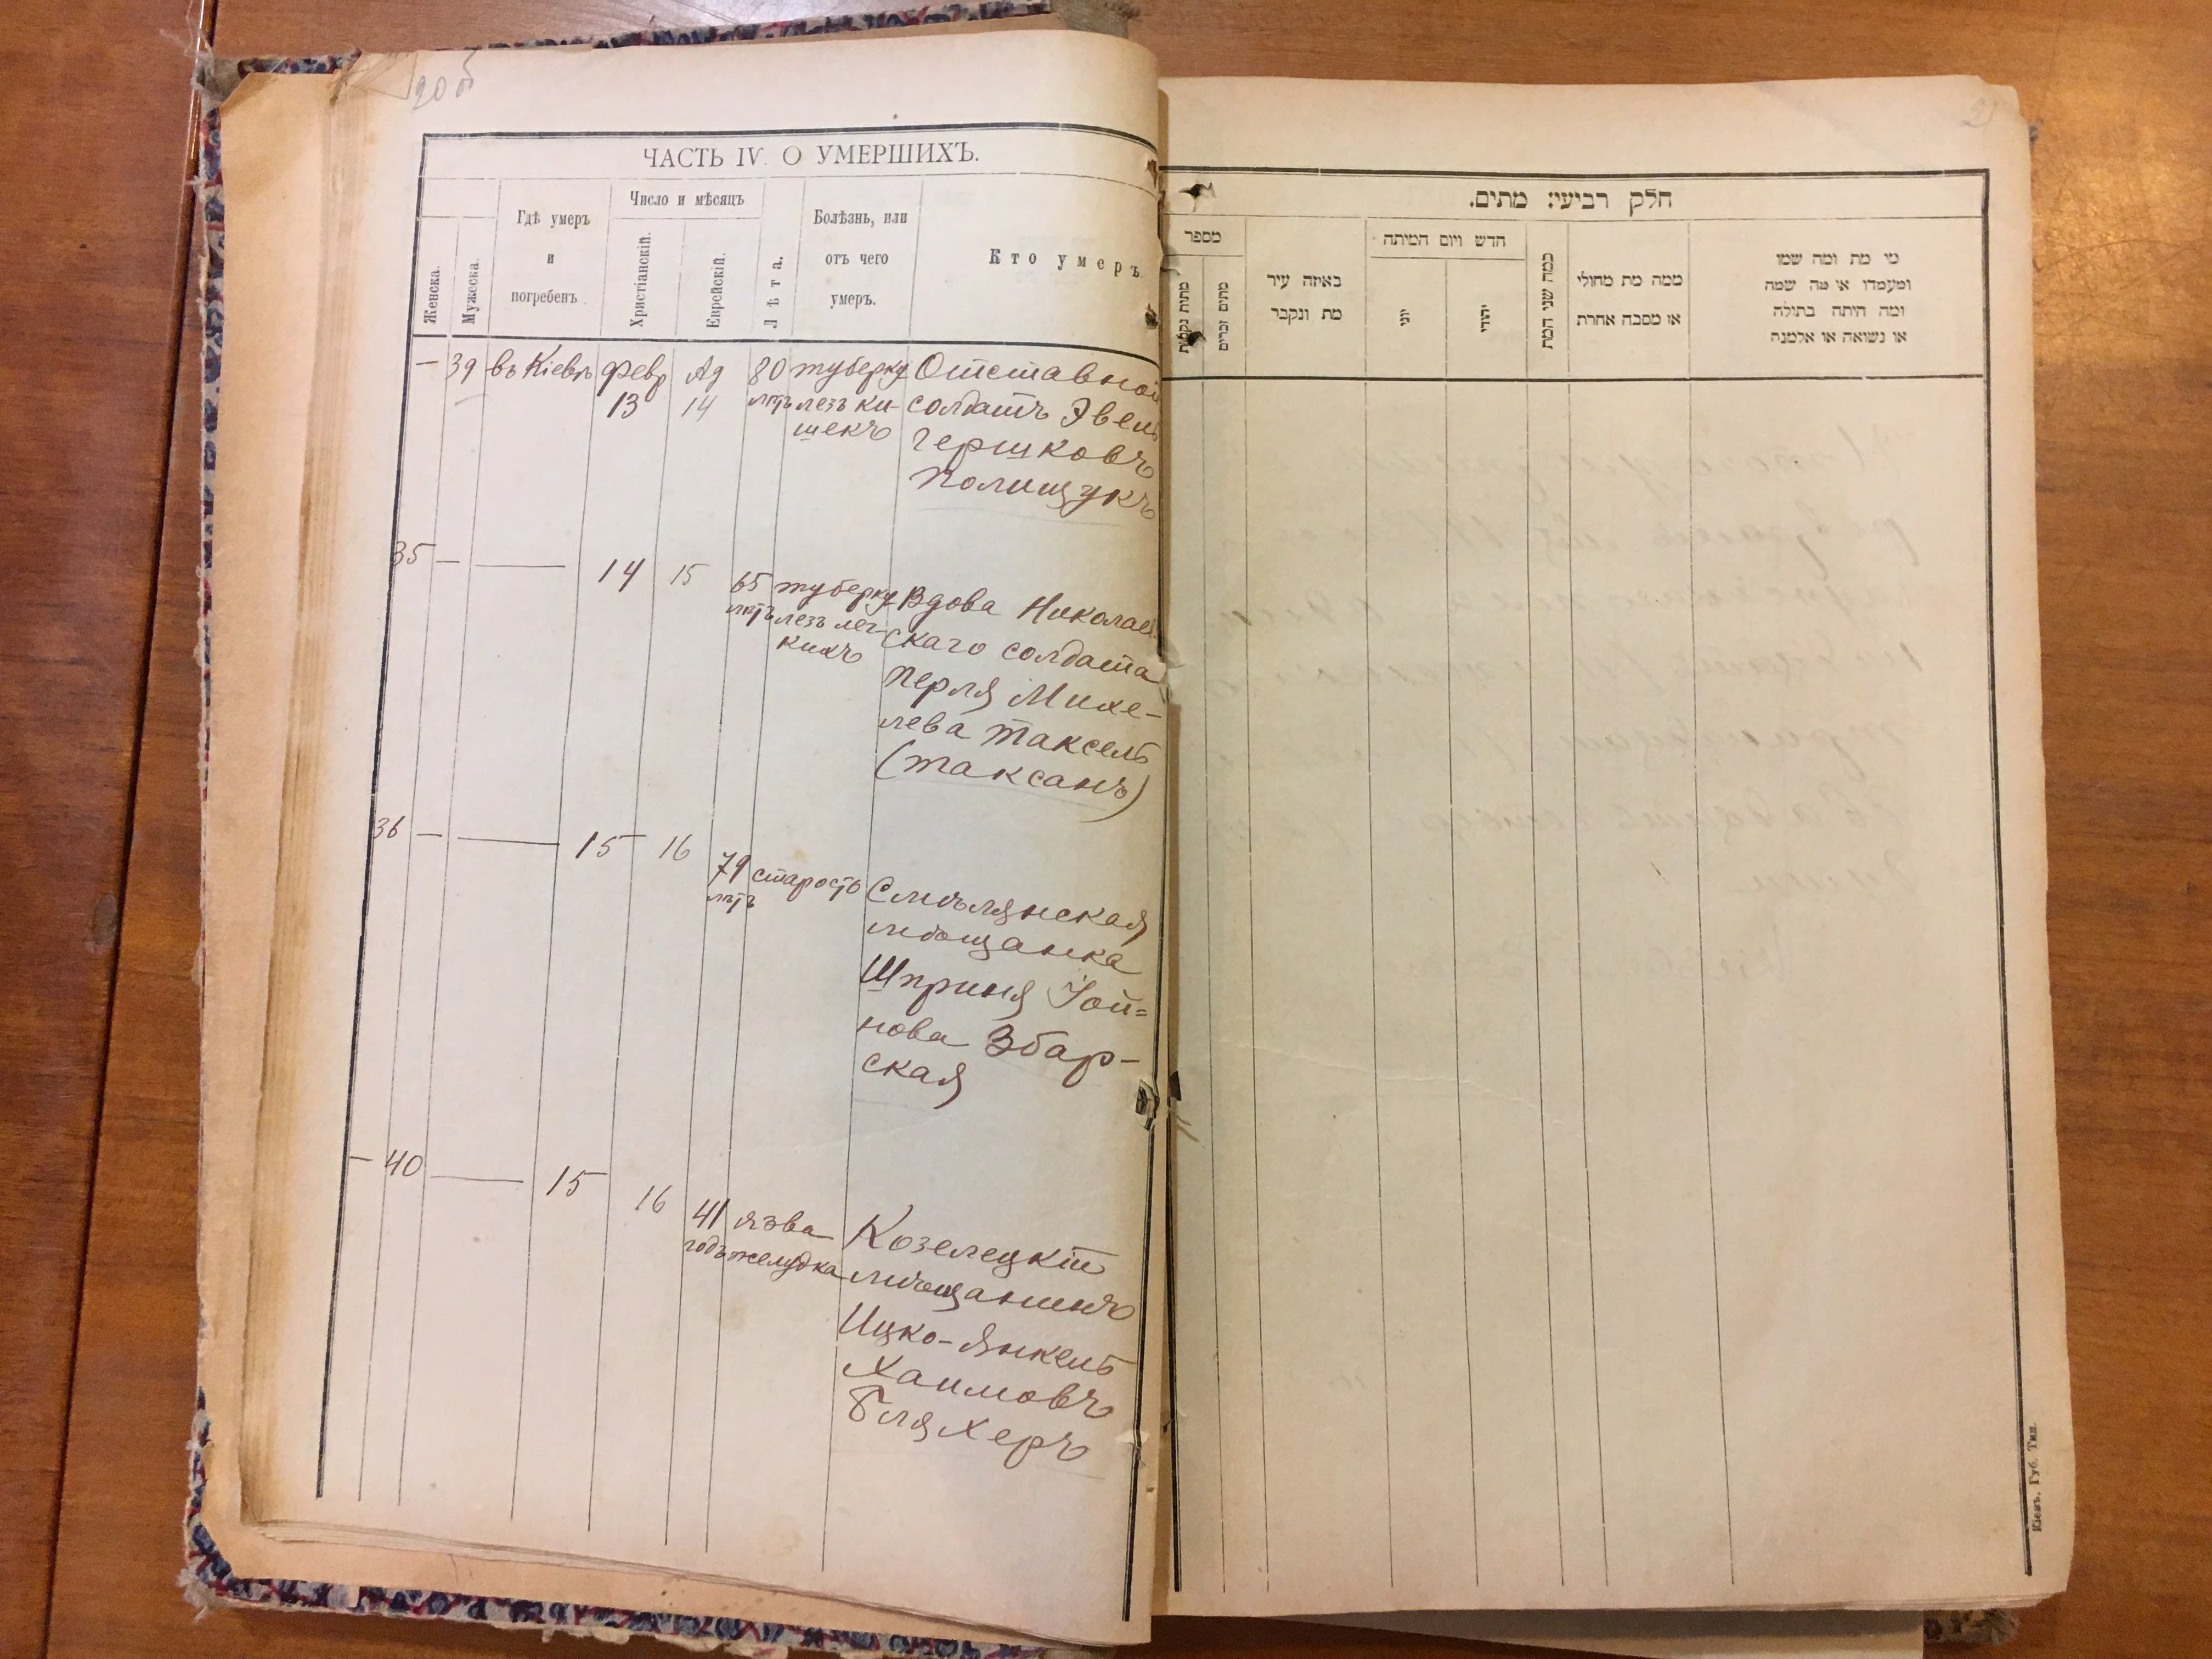 20 об
ЧАСТЬ IV. О УМЕРШИХЪ.
Женска.
Мужеска.
Гдѣ умеръ
и
погребенъ
Число и мѣсяцъ
Христіанскій.
Еврейскій.
Лѣта.
Болѣзнь, или
отъ чего
умеръ.
Кто умеръ
— 39 въ Кіевѣ Февр Ад 80 туберку Отставной
13 14 лѣтъ лезъ ки- солдатъ Эвель
шекъ Гершковъ
Полищукъ
35 — — 14 15 65 туберку Вдова Николаев
лѣтъ лезъ лег- скаго солдата
кихъ Перля Михе-
лева Таксель
(Таксанъ)
36 — — 15 16 79 старость Смѣлянская
лѣтъ мѣщанка
Шприня Іой-
нова Збар-
ская
— 40 — 15 16 41 язва Козелецкій
годъ желудка мѣщанинъ
Ицко-Янкель
Хаимовъ
Бляхеръ
21
חלק רביעי: מתים.
מספר
מתות נקבות
מתים זכרים
באיזה עיר
מת ונקבר
חדש ויום המיתה
יוני
יהודי
כמה שני המת
ממה מת מחולי
או מסבה אחרת
מי מת ומה שמו
ומעמדו או מה שמה
ומה היתה בתולה
או נשואה או אלמנה
Кіевъ, Губ. Тип.